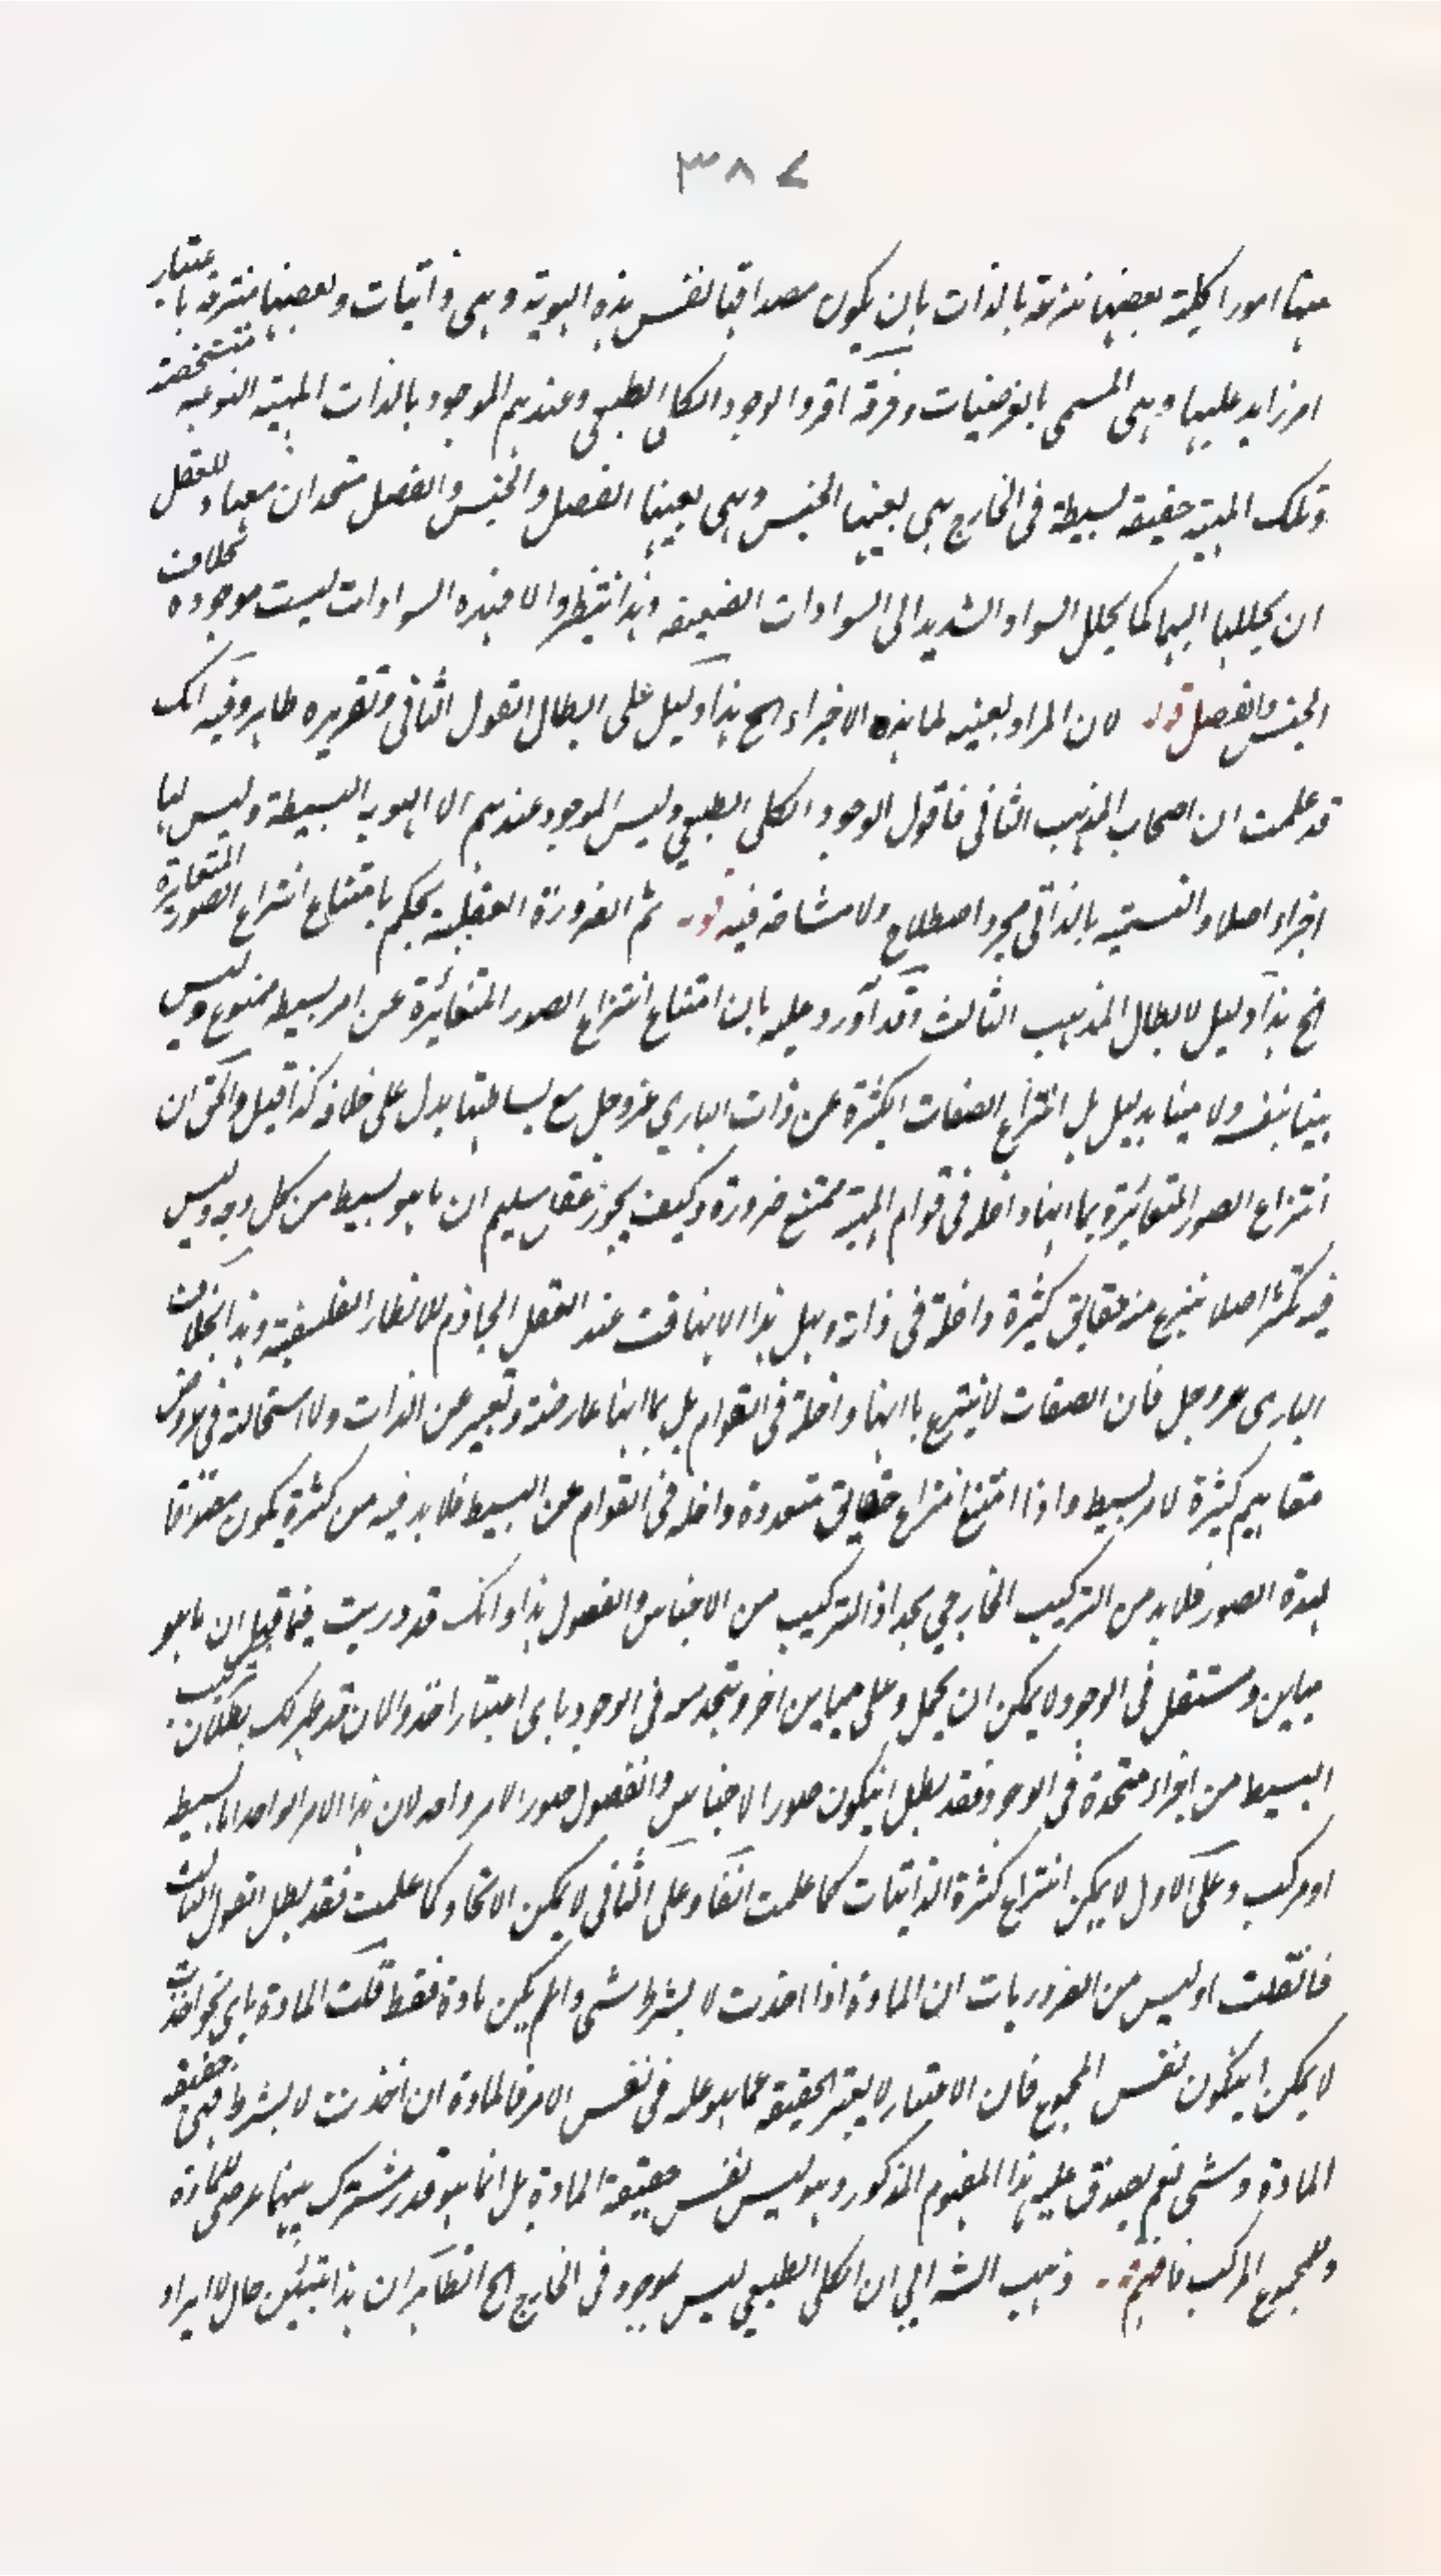 ٣٨٧
منها امورا كلية بعضها منتزعة بالذات بان يكون مصداقها نفس هذه الهوية وهى ذاتيات وبعضها منتزعة باعتبار
امر زايد عليها وهى المسمى بالعرضيات وفرقة اقروا لوجود الكلى الطبعى وعندهم الموجود بالذات المهية النوعية المتشخصة
وتلك المهية حقيقة بسيطة فى الخارج هى بعينها الجنس وهى بعينها الفصل والجنس والفصل متحدان معها وللعقل
ان يحللها اليها كما يحلل السواد الشديد الى السوادات الضعيفة وهذا تنظير والا فهذه السوادات ليست موجودة بخلاف
الجنس والفصل قوله لان المراد بعينه لما هذه الاجزاء الخ هذا دليل على ابطال القول الثانى وتقريره ظاهر وفيه انك
قد علمت ان اصحاب المذهب الثانى فاقول لوجود الكلى الطبعى وليس الموجود عندهم الا الهوية البسيطة وليس لها
اجزاء اصلا والتسمية بالذاتى مجرد اصطلاح ولا مشاحة فيه قوله ثم الضرورة العقلية يحكم بامتناع انتزاع الصور المتغايرة
الخ هذا دليل لابطال المذهب الثالث وقد اورد عليه بان امتناع انتزاع الصور المتغائرة عن امر بسيط ممنوع وليس
بينا بنفسه ولا مبينا بدليل بل انتزاع الصفات الكثيرة عن ذات البارى عز وجل مع بساطتها يدل على خلافه كذا قيل والحق ان
انتزاع الصور المتغائرة بما انها داخلة فى قوام المهية ممتنع ضرورة وكيف يجوز عقل سليم ان ما هو بسيط من كل وجه وليس
فيه تكثر اصلا ينتزع منه حقايق كثيرة داخلة فى ذاته وهل هذا الا تهافت عند العقل الجازم للانظار الفلسفية وهذا بخلاف
البارى عز وجل فان الصفات لا ينتزع بما انها داخلة فى القوام بل بما انها عارضة وتعبير عن الذات ولا استحالة فى عروض
مفاهيم كثيرة لامر بسيط واذا امتنع انتزاع حقايق متعددة داخلة فى القوام عن البسيط فلا بد فيه من كثرة يكون مصداقا
لهذه الصور فلا بد من التركيب الخارجى بحذاء التركيب من الاجناس والفصول هذا وانك قد دريت فيما قبل ان ما هو
مباين ومستقل فى الوجود لا يمكن ان يحمل على مباين اخر ويتحد معه فى الوجود باى اعتبار اخذ والان قد ظهر لك بطلان تركيب
البسيط من اجزاء متحدة فى الوجود فقد بطل ان يكون صور الاجناس والفصول صورا لامر واحد لان هذا الامر الواحد اما بسيط
او مركب وعلى الاول لا يمكن انتزاع كثرة الذاتيات كما علمت انفا وعلى الثانى لا يمكن الاتحاد كما علمت فقد بطل القول الثالث
فان قلت اوليس من الضروريات ان المادة اذا اخذت لا بشرط شى والم يكن مادة فقط قلت المادة باى نحو اخذت
لا يمكن ان يكون نفس المجموع فان الاعتبار لا يغير الحقيقة عما هو عليه فى نفس الامر فالمادة ان اخذت لا بشرط فهى حقيقة
المادة وشى نعم يصدق عليه هذا المفهوم المذكور وهو ليس نفس حقيقة المادة بل انما هو قدر مشترك بينهما عرضى للمادة
وللمجموع المركب فافهم قوله ذهب الشه الى ان الكلى الطبيعى ليس بموجود فى الخارج الخ الظاهر ان هذا تبيين حال لا ايراد